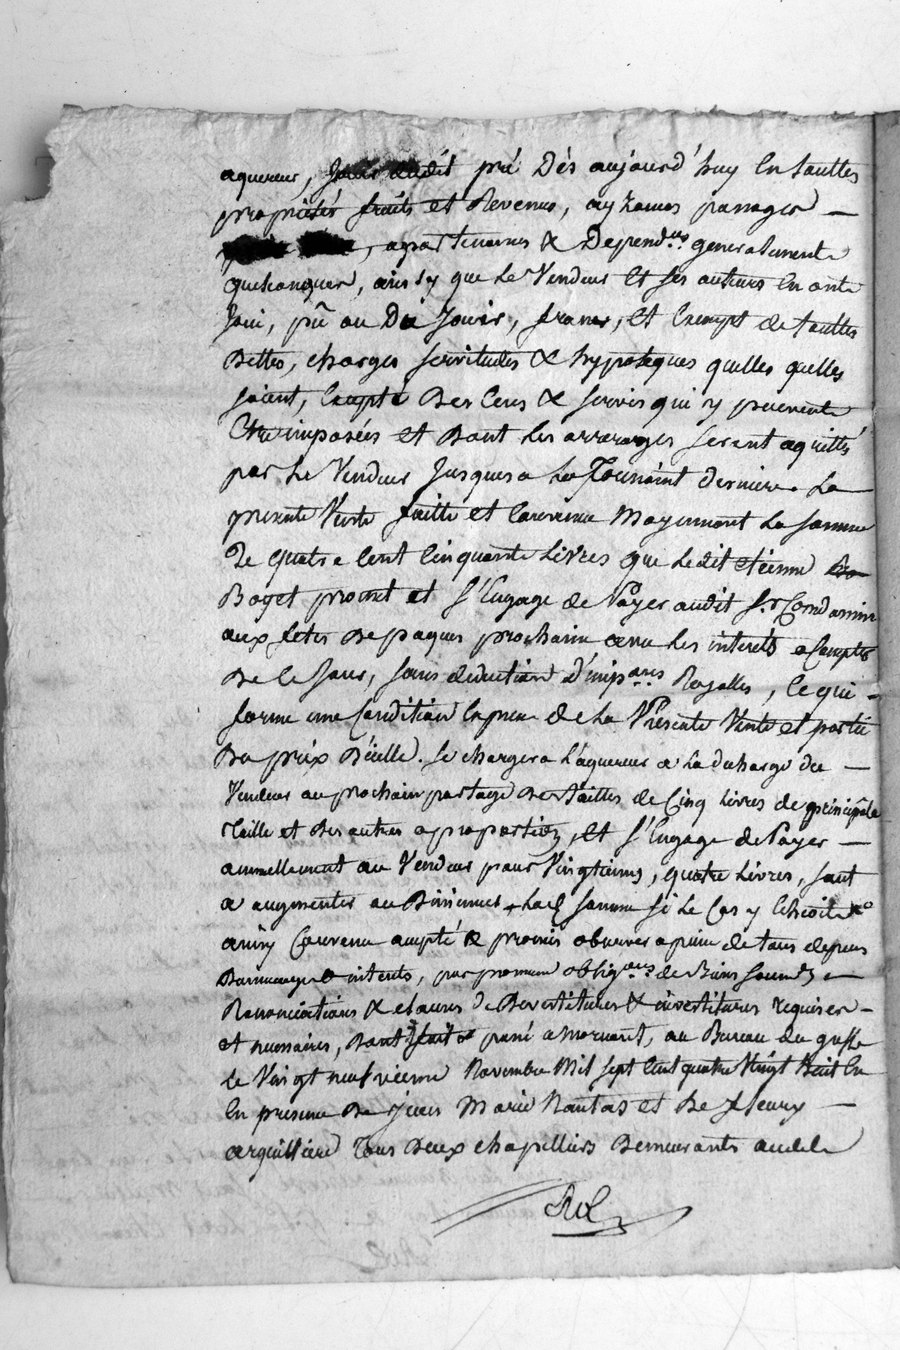 aquereur, pré Dès aujourd'huy En touttes
propriétés fruits et Revenus, ayzances passages
, apartenances & Depend.ces generalement
quelconques, ainsy que Le Vendeur Et ses auteurs En onts
Joui, pû ou Du Jouir, franc, Et Exempt de touttes
Dettes, charges servitudes & hypoteques quelles quelles
soient, Excepté Des Cens & servis qui y peuvent
Etre imposées et Dont Les arrerages seront aquittés
par Le Vendeur Jusques a La Toussaint derniere. La
presente Vente faitte et Convenue Moyennant La somme
De quatre Cent Cinquante Livres que Ledit etienne
Boget promet et s'Engage de Payer audit s.r Condamin
aux fetes De paques prochain avec Les interets a Compter
De Ce Jour, sans deduction d'impo.ons Royalles, Ce qui
forme une Condition Expresse de La Présente Vente et partie
Du prix D'icelle. Se chargera L'aquereur a La decharge du
Vendeur au prochain partage Des Tailles de Cinq Livres de principale
Taille et Des autres a proportion, Et s'Engage de Payer
annuellement au Vendeur pour Vingtiemes, quatre Livres, sauf
a augmenter ou Diminuer Lad. somme si Le Cas y Echoit
ainsy Convenu accepté & promis observer a peine de tous depens
Dommages & interets, par promesses oblig.ons de Biens soumis.
Renonciations & clauses de Devestitures & investitures requises
et necessaires, Dont fait & passé a mornant, au Bureau du greffe
Le Vingt neuf vieme Novembre Mil sept Cent quatre Vingt huit En
En presence De Jean Marie Nantas et De fleury
arquilliere Tous Deux chapelliers Demeurants audit